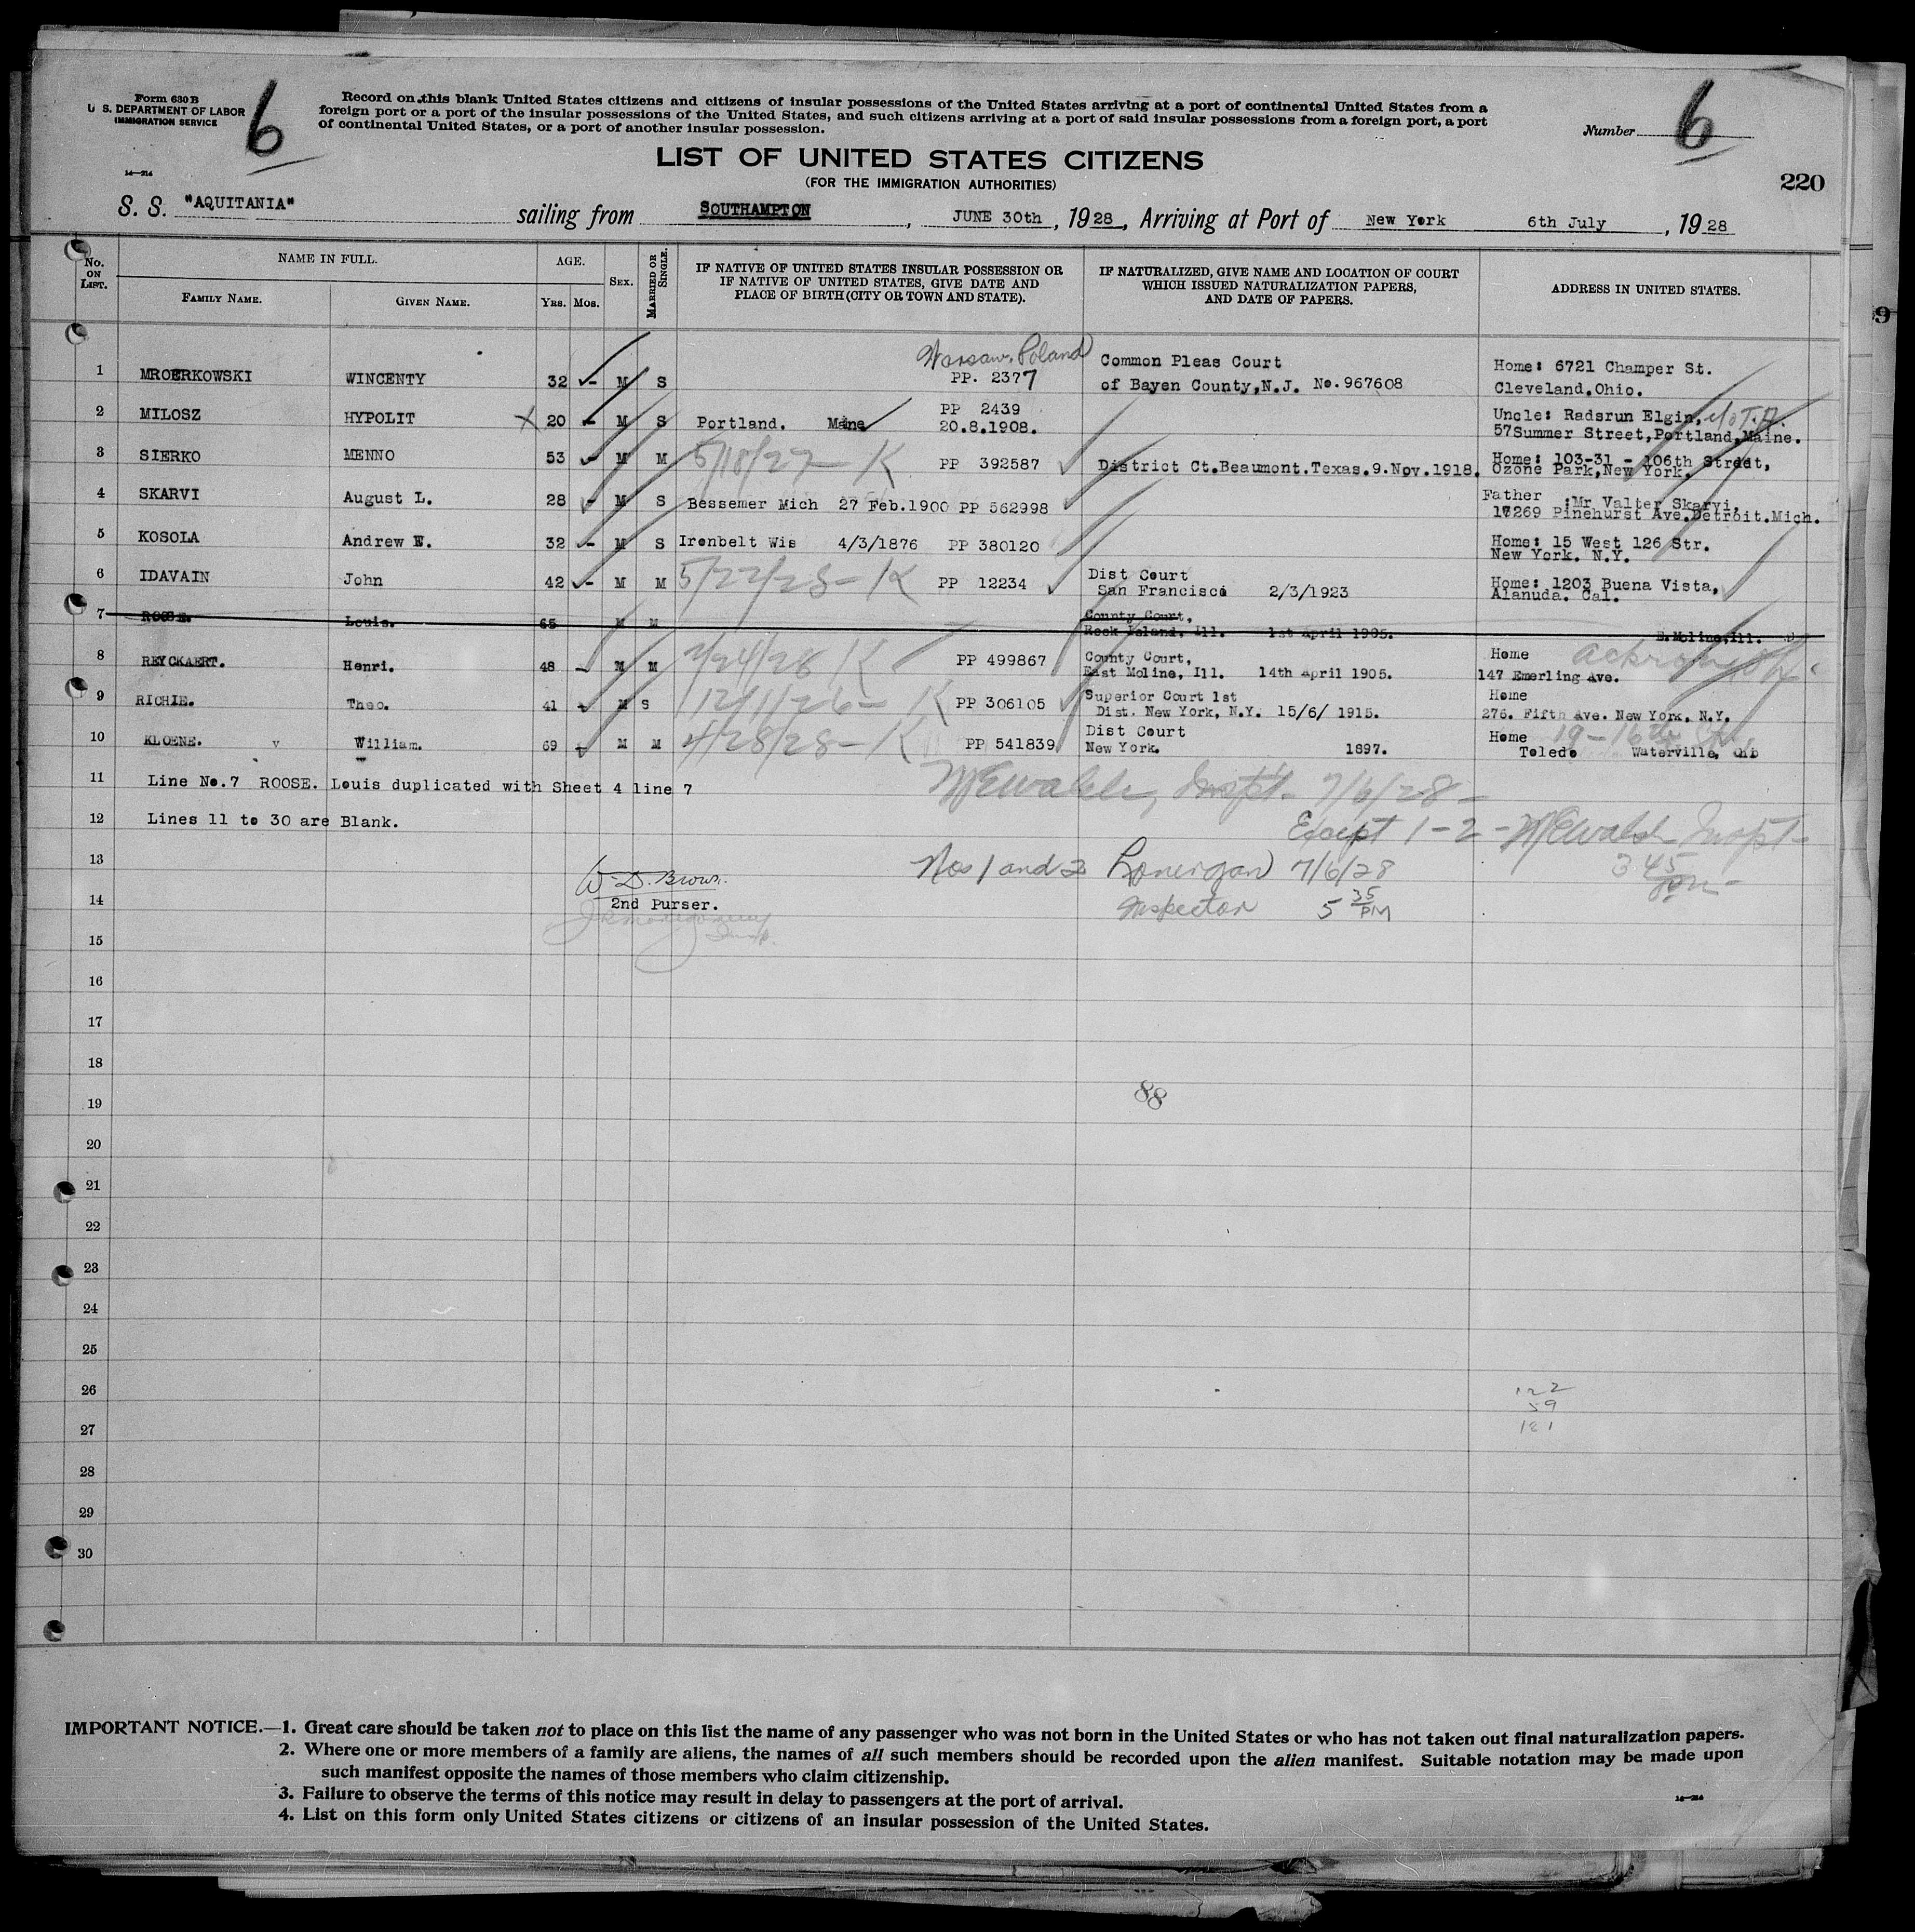 Form 630 B
U. S. DEPARTMENT OF LABOR
IMMIGRATION SERVICE
14—214
6
Record on this blank United States citizens and citizens of insular possessions of the United States arriving at a port of continental United States from a
foreign port or a port of the insular possessions of the United States, and such citizens arriving at a port of said insular possessions from a foreign port, a port
of continental United States, or a port of another insular possession.
Number 6
LIST OF UNITED STATES CITIZENS
(FOR THE IMMIGRATION AUTHORITIES)
220
S. S. "AQUITANIA" sailing from SOUTHAMPTON, JUNE 30th, 1928, Arriving at Port of New York 6th July, 1928
No. ON LIST.
NAME IN FULL.
FAMILY NAME.
GIVEN NAME.
AGE.
YRS. MOS.
SEX.
MARRIED OR SINGLE.
IF NATIVE OF UNITED STATES INSULAR POSSESSION OR
IF NATIVE OF UNITED STATES, GIVE DATE AND
PLACE OF BIRTH (CITY OR TOWN AND STATE).
IF NATURALIZED, GIVE NAME AND LOCATION OF COURT
WHICH ISSUED NATURALIZATION PAPERS,
AND DATE OF PAPERS.
ADDRESS IN UNITED STATES.
9
Warsaw, Poland Common Pleas Court Home: 6721 Champer St.
1 MROERKOWSKI WINCENTY 32 - M S PP. 2377 of Bayen County,N.J. No.967608 Cleveland.Ohio.
PP 2439 Uncle: Radsrun Elgin,
2 MILOSZ HYPOLIT X 20 - M S Portland. Mane 20.8.1908. 57Summer Street,Portland,Maine.
3 SIERKO MENNO 53 - M M 5/18/27 - K PP 392587 District Ct.Beaumont.Texas.9.Nov.1918. Home: 103-31 - 106th Street,
Ozone Park,New York.
4 SKARVI August L. 28 - M S Bessemer Mich 27 Feb.1900 PP 562998 Father :Mr Valter Skarvi,
17269 Pinehurst Ave.Detroit.Mich.
5 KOSOLA Andrew E. 32 - M S Ironbelt Wis 4/3/1876 PP 380120 Home: 15 West 126 Str.
New York. N.Y.
6 IDAVAIN John 42 - M M 5/22/28 - K PP 12234 Dist Court Home: 1203 Buena Vista,
San Francisco 2/3/1923 Alanuda. Cal.
7 ROOSE. Louis. 65 M M County Court,
Rock Island, Ill. 1st April 1905. E.Moline,Ill.
8 REYCKAERT. Henri. 48 - M M 2/24/28 K PP 499867 County Court, Home
East Moline, Ill. 14th April 1905. 147 Emerling Ave.
9 RICHIE. Theo. 41 - M S 12/1/26 - K PP 306105 Superior Court 1st Home
Dist. New York, N.Y. 15/6/ 1915. 276. Fifth Ave. New York. N.Y.
10 KLOENE. v William. 69 - M M 4/28/28 - K PP 541839 Dist Court Home 19-16th
New York. 1897. Toledo Waterville,
11 Line No.7 ROOSE. Louis duplicated with Sheet 4 line 7
Inspt. 7/6/28 -
12 Lines 11 to 30 are Blank.
Except 1-2 - Inspt-
13 Nos 1 and 2 Lonergan 7/6/28 3 45
W. D. Brown.
14 2nd Purser. Inspector 5 35 PM
15
16
17
18
88
19
20
21
22
23
24
25
26
122
59
181
27
28
29
30
IMPORTANT NOTICE.—1. Great care should be taken not to place on this list the name of any passenger who was not born in the United States or who has not taken out final naturalization papers.
2. Where one or more members of a family are aliens, the names of all such members should be recorded upon the alien manifest. Suitable notation may be made upon
such manifest opposite the names of those members who claim citizenship.
3. Failure to observe the terms of this notice may result in delay to passengers at the port of arrival.
4. List on this form only United States citizens or citizens of an insular possession of the United States.
14—214